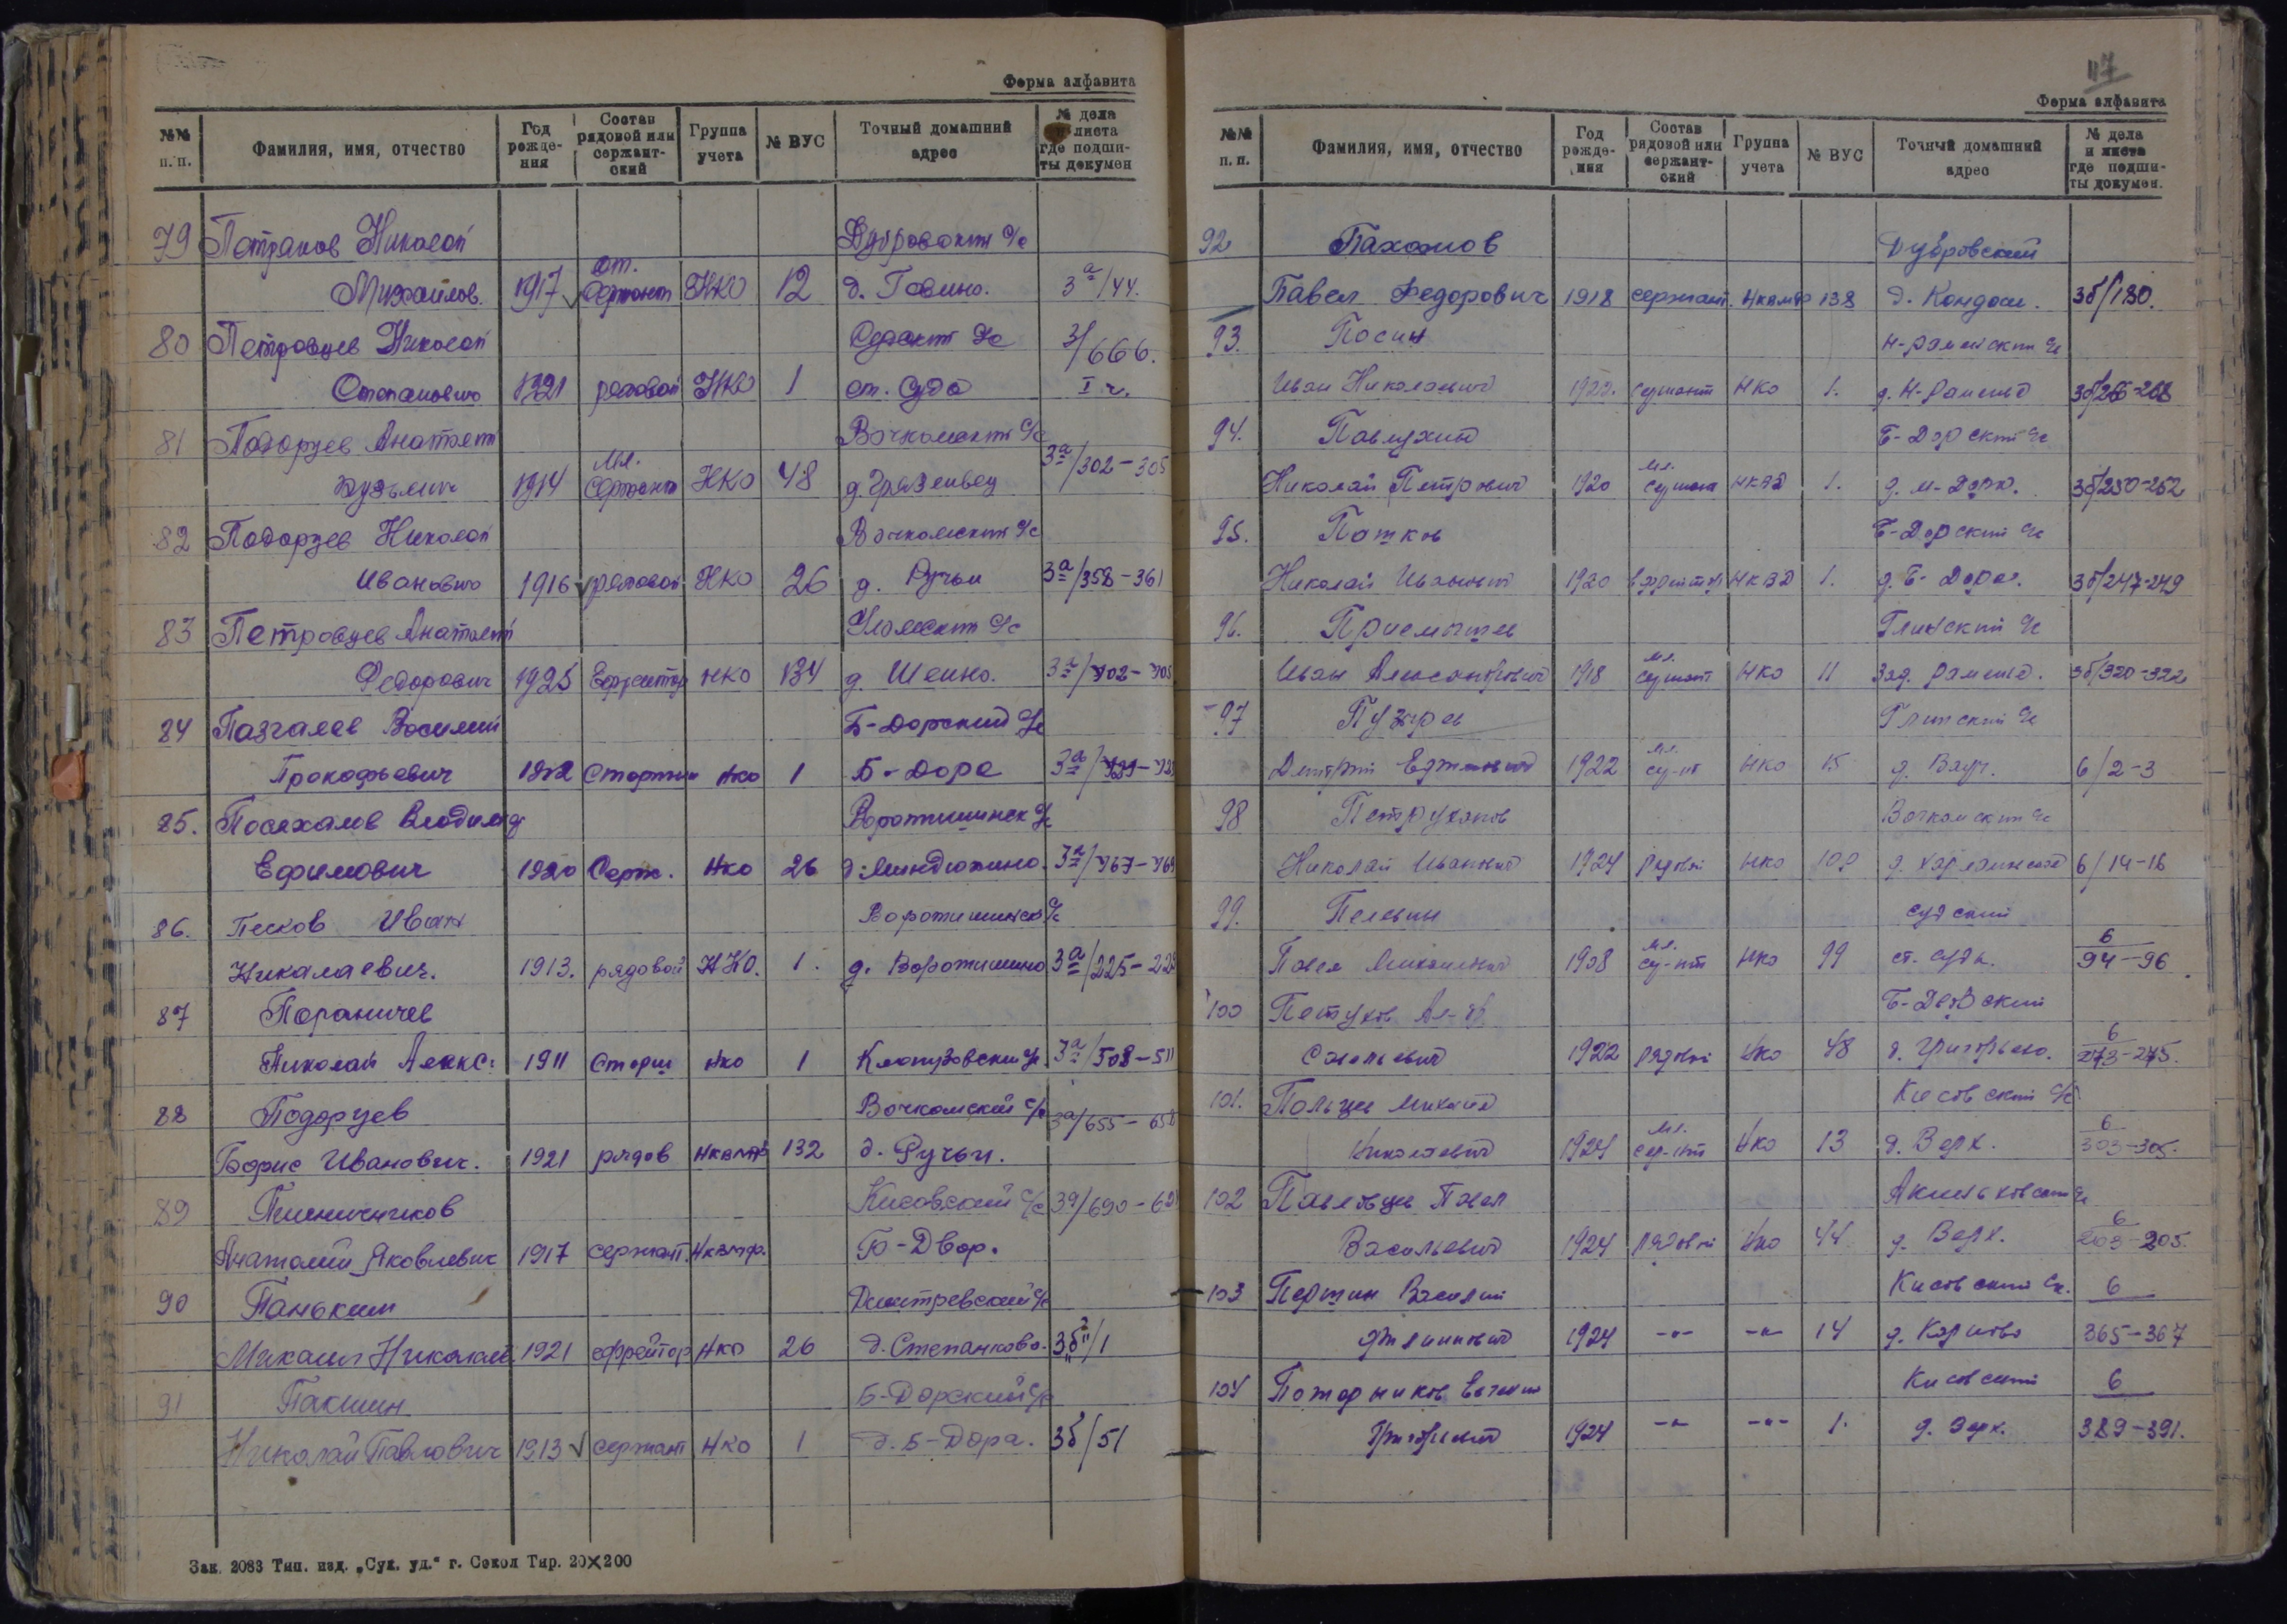 Форма алфавита
№№ п. п. Фамилия, имя, отчество Год рождения Состав рядовой или сержантский Группа учета № ВУС Точный домашний адрес № дела и листа где подшиты докумен
79 Петраков Николай Дубровский с/с
Михайлов. 1917 ст. сержант НКО 12 д. 3а/44.
80 Петровцев Николай с/с 3/666.
Степанович 1921 рядовой НКО 1 ст. Суда I ч.
81 Подорцев Анатолий Вочкомский с/с
Кузьмич 1914 мл. сержант НКО 48 д. Грязенвец 3а/302-305
82 Подорцев Николай Вочкомский с/с
Иванович 1916 рядовой НКО 26 д. Ручьи 3а/358-361
83 Петровцев Анатолий Уломский с/с
Федорович 1925 Ефрейтор НКО 134 д. Шеино. 3а/702-705
84 Пазгалев Василий Б-Дорский с/с
Прокофьевич 1922 НКО 1 Б-Дора 3а/
85. Посяхалов Владимир Воротишинск с/с
Ефимович 1920 Серж. НКО 26 д. Миндюкино. 3а/767-769
86. Песков Иван Воротишинск с/с
Николаевич. 1913. рядовой НКО. 1. д. Воротишино 3а/225-228
87 Пораничев
Николай Алекс. 1911 Старш НКО 1 Клопузовский с/с 3а/508-511
88 Подорцев Вочкомский с/с 3а/655-658
Борис Иванович. 1921 рядов НКВМФ 132 д. Ручьи.
89 Пшеничников Кисовский с/с 3а/690-69
Анатолий Яковлевич 1917 сержант. НКВМФ. Б-Двор.
90 Панькин Дмитревский с/с
Михаил Николаев. 1921 ефрейтор НКО 26 д. Степанково. 3б/1
91 Пакшин Б-Дорский с/с
Николай Павлович 1913 сержант НКО 1 д. Б-Дора. 3б/51
Зак. 2083 Тип. изд. „Сух. уд.“ г. Сокол Тир. 20×200
117
Форма алфавита
№№ п. п. Фамилия, имя, отчество Год рождения Состав рядовой или сержантский Группа учета № ВУС Точный домашний адрес № дела и листа где подшиты докумен.
92 Пахомов Дубровский
Павел Федорович 1918 сержант. НКВМФ 138 д. Кондаш. 3б/180.
93. Посин Н-Раменский с/с
Иван Николаевич 1922. сержант НКО 1. д. Н-Раменье 3б/266-268
94. Павлухин Б-Дорский с/с
Николай Петрович 1920 мл. НКВД 1. д. М-Дора. 3б/250-252
95. Патков Б-Дорский с/с
Николай Иванович 1920 ефрейтор НКВД 1. д. Б-Дора. 3б/247-249
96. Приемышев Глинский с/с
Иван Александрович 1918 мл. сержант НКО 11 Зад. Раменье. 3б/320-322
97 Пузырев Глинский с/с
Дмитрий 1922 мл. НКО 15 д. 6/2-3
98 Петруханов Вочкомский с/с
Николай Иванович 1924 рядовой НКО д. 6/14-16
99. Пелевин Судский
Павел Михайлович 1908 мл. НКО 99 ст. Суда. 6/94-96
100 Петухов Ал-др Б-Дворский
Савельевич 1922 рядовой НКО 48 д. Григорьево. 6/273-275.
101. Пальцев Михаил Кисовский с/с
Николаевич 1924 мл. НКО 13 д. Верх. 6/303-305.
102 Павловцев Павел
Васильевич 1924 рядовой НКО 44 д. Верх. 6/203-205
103 Першин Василий Кисовский с/с. 6
1924 -"- -"- 14 д. Карпово 365-367
104 Кисовский 6
Григорьевич 1924 -"- -"- 1. д. 389-391.